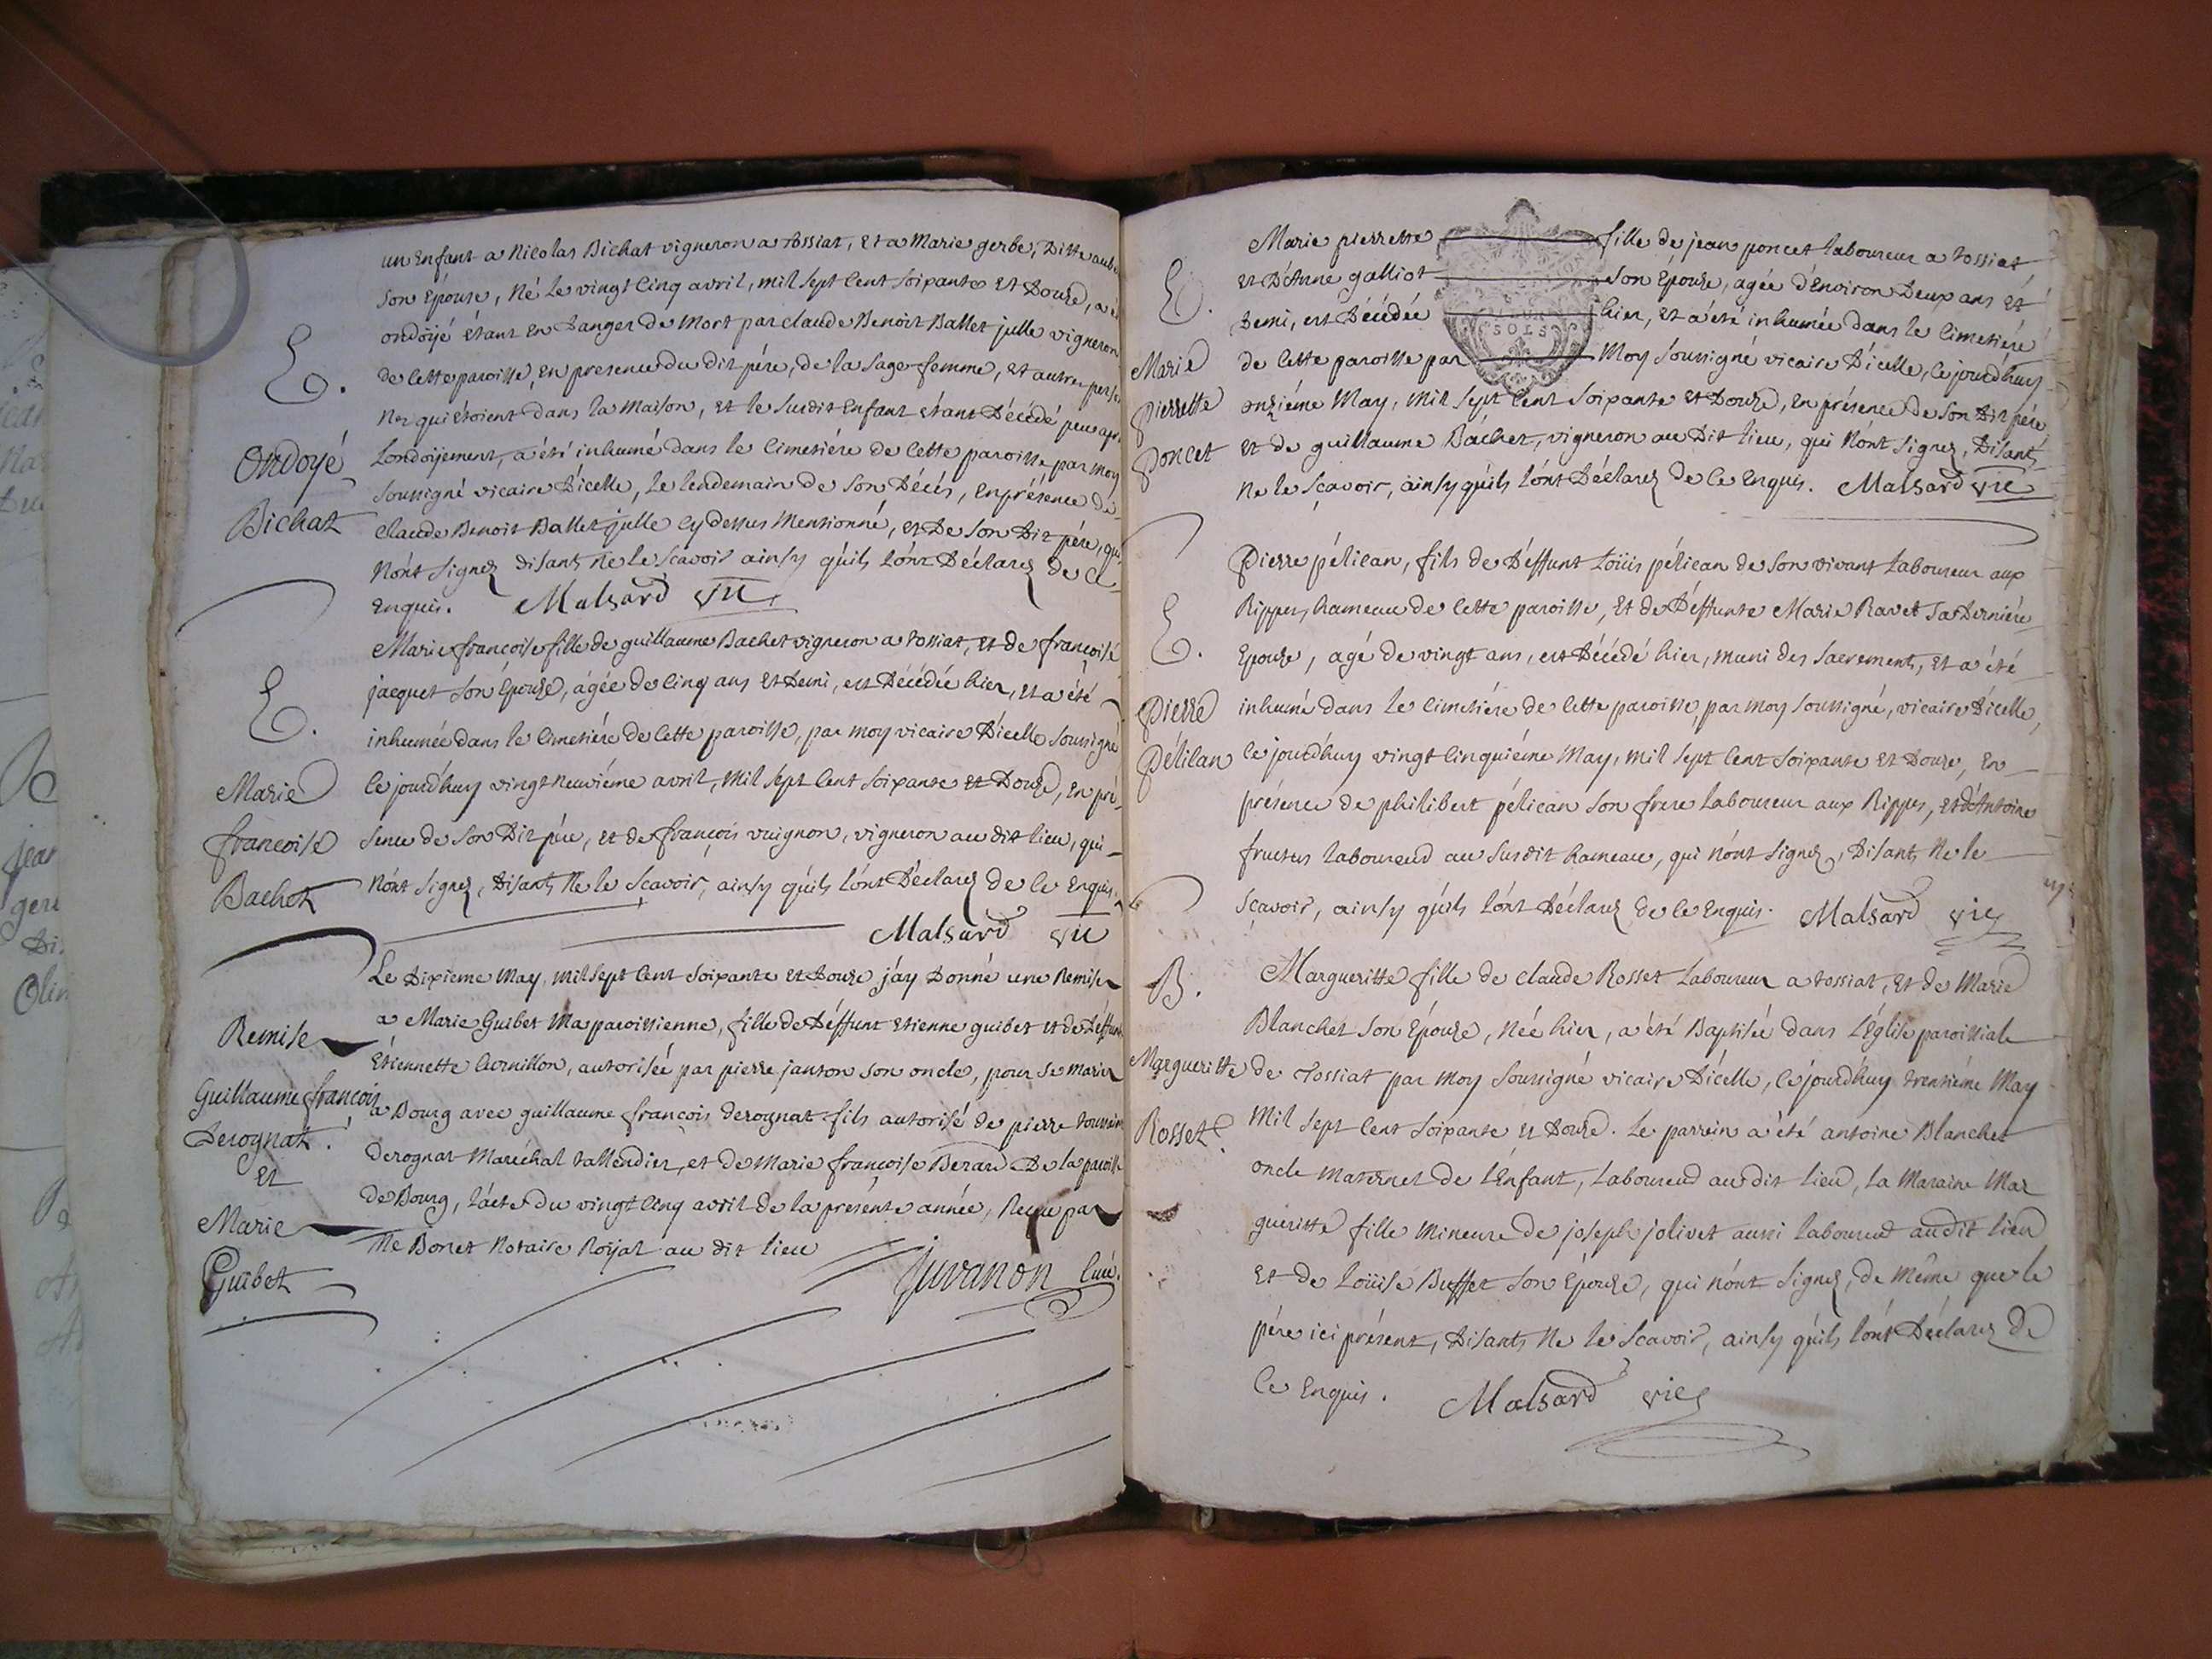 un Enfant a Nicolas Bichat vigneron a tossiat, Et a Marie gerbe, Ditte
Son Epouse, Né le vingt cinq avril, mil sept Cent soixante Et Douze, a
ondöyé étant En danger de Mort par claude Benoit Ballet julle vigneron
de cette paroisse, en presence du dit pére, de la Sage-femme, et autres
nes qui étoient dans la Maison, et le susdit Enfant étant Décédé peu
E.
Londoijement, a été inhumé dans le Cimetiére de cette paroisse par moy
Ondoyé
soussigné vicaire d'icelle, Le lendemain de son Décés, En présence de
Bichat
claude Benoit Ballet julle cy dessus Mentionné, et De son Dit pére, qui
N'ont signez disants ne le sçavoir ainsy qu'ils L'ont Déclarez de ce
enquis. Malsard vic
Marie françoise fille de guillaume Bachet vigneron a tossiat, et de françoise
jacquet son Epouse, agée de Cinq ans et Demi, est Décédée hier, et a été
E.
inhumée dans le Cimetiére de cette paroisse, par moy vicaire d'icelle soussigné
Marie
ce jourd'huy vingt neuviéme avril, mil sept Cent soixante et Douze, En pré
françoise
sence de son Dit pére, et de françois vuignon, vigneron au dit lieu, qui
Bachet
n'ont signez, Disants Ne le sçavoir, ainsy qu'ils L'ont Déclarez de ce Enquis.
Malsard vic
Le Dixieme May, mil sept Cent soixante et Douze j'ay Donné une Remise
Remise
a Marie Guibet Ma paroissienne, fille de Déffunt Etienne guibet et de Déffunte
Etiennette Curnillon, autorisée par pierre janton son oncle, pour se marier
Guillaume françois
a Bourg avec guillaume françois derognat fils autorisé de pierre
Derognat.
derognat Maréchal tallendier, et de Marie françoise Berard De la paroisse
Et
de Bourg, L'acte du vingt cinq avril de la présente année, Reçu par
Marie
Me Bonet Notaire Roijal au dit lieu
Guibet
Juvanon Curé.
Marie pierrette fille de jean poncet laboureur a tossiat
et D'Anne galliot Son Epouse, agée d'Environ Deux ans et
E.
Demi, est Décédée hier, et a été inhumée dans le Cimetiére
SOLS
Marie
de cette paroisse par Moy soussigné vicaire D'icelle, ce jourd'huy
pierrette
onziéme May, mil sept Cent soixante et Douze, En présence de son Dit pére
poncet
et de guillaume Bachet, vigneron au Dit lieu, qui N'ont signez, Disants
ne le sçavoir, ainsy qu'ils L'ont Déclarez de ce Enquis. Malsard vic
Pierre pélican, fils de Déffunt Loüis pélican de son vivant Laboureur aux
Rippes, hameau de cette paroisse, Et de Déffunte Marie Ravet sa Derniére
E.
Epouse, agé de vingt ans, est Décédé hier, muni des sacrements, et a été
Pierre
inhumé dans le Cimetiére de cette paroisse par moy soussigné, vicaire d'icelle,
Pélican
ce jourd'huy vingt Cinquiéme May, mil sept Cent soixante et Douze, En
présence de philibert pélican son frere laboureur aux Rippes, et d'Antoine
fructus laboureur au susdit hameau, qui N'ont signez, Disants Ne le
sçavoir, ainsy qu'ils L'ont Déclarez de ce Enquis. Malsard vic
B.
Margueritte fille de claude Rosset Laboureur a tossiat, Et de Marie
Blanchet Son Epouse, Née hier, a été Baptisée dans L'Eglise paroissiale
Margueritte
de Tossiat par moy soussigné vicaire D'icelle, ce jourd'huy trentiéme May
Rosset
Mil sept Cent soixante et Douze. Le parrein a été antoine Blanchet
oncle maternel de L'Enfant, Laboureur au dit Lieu, la Maraine Mar
gueritte fille Mineure de joseph jolivet aussi laboureur au dit lieu
Et de Loüise Buffet son Epouse, qui N'ont signez, de Même que le
pére ici présent, Disants Ne le sçavoir, ainsy qu'ils L'ont Déclarez de
Ce Enquis. Malsard vic